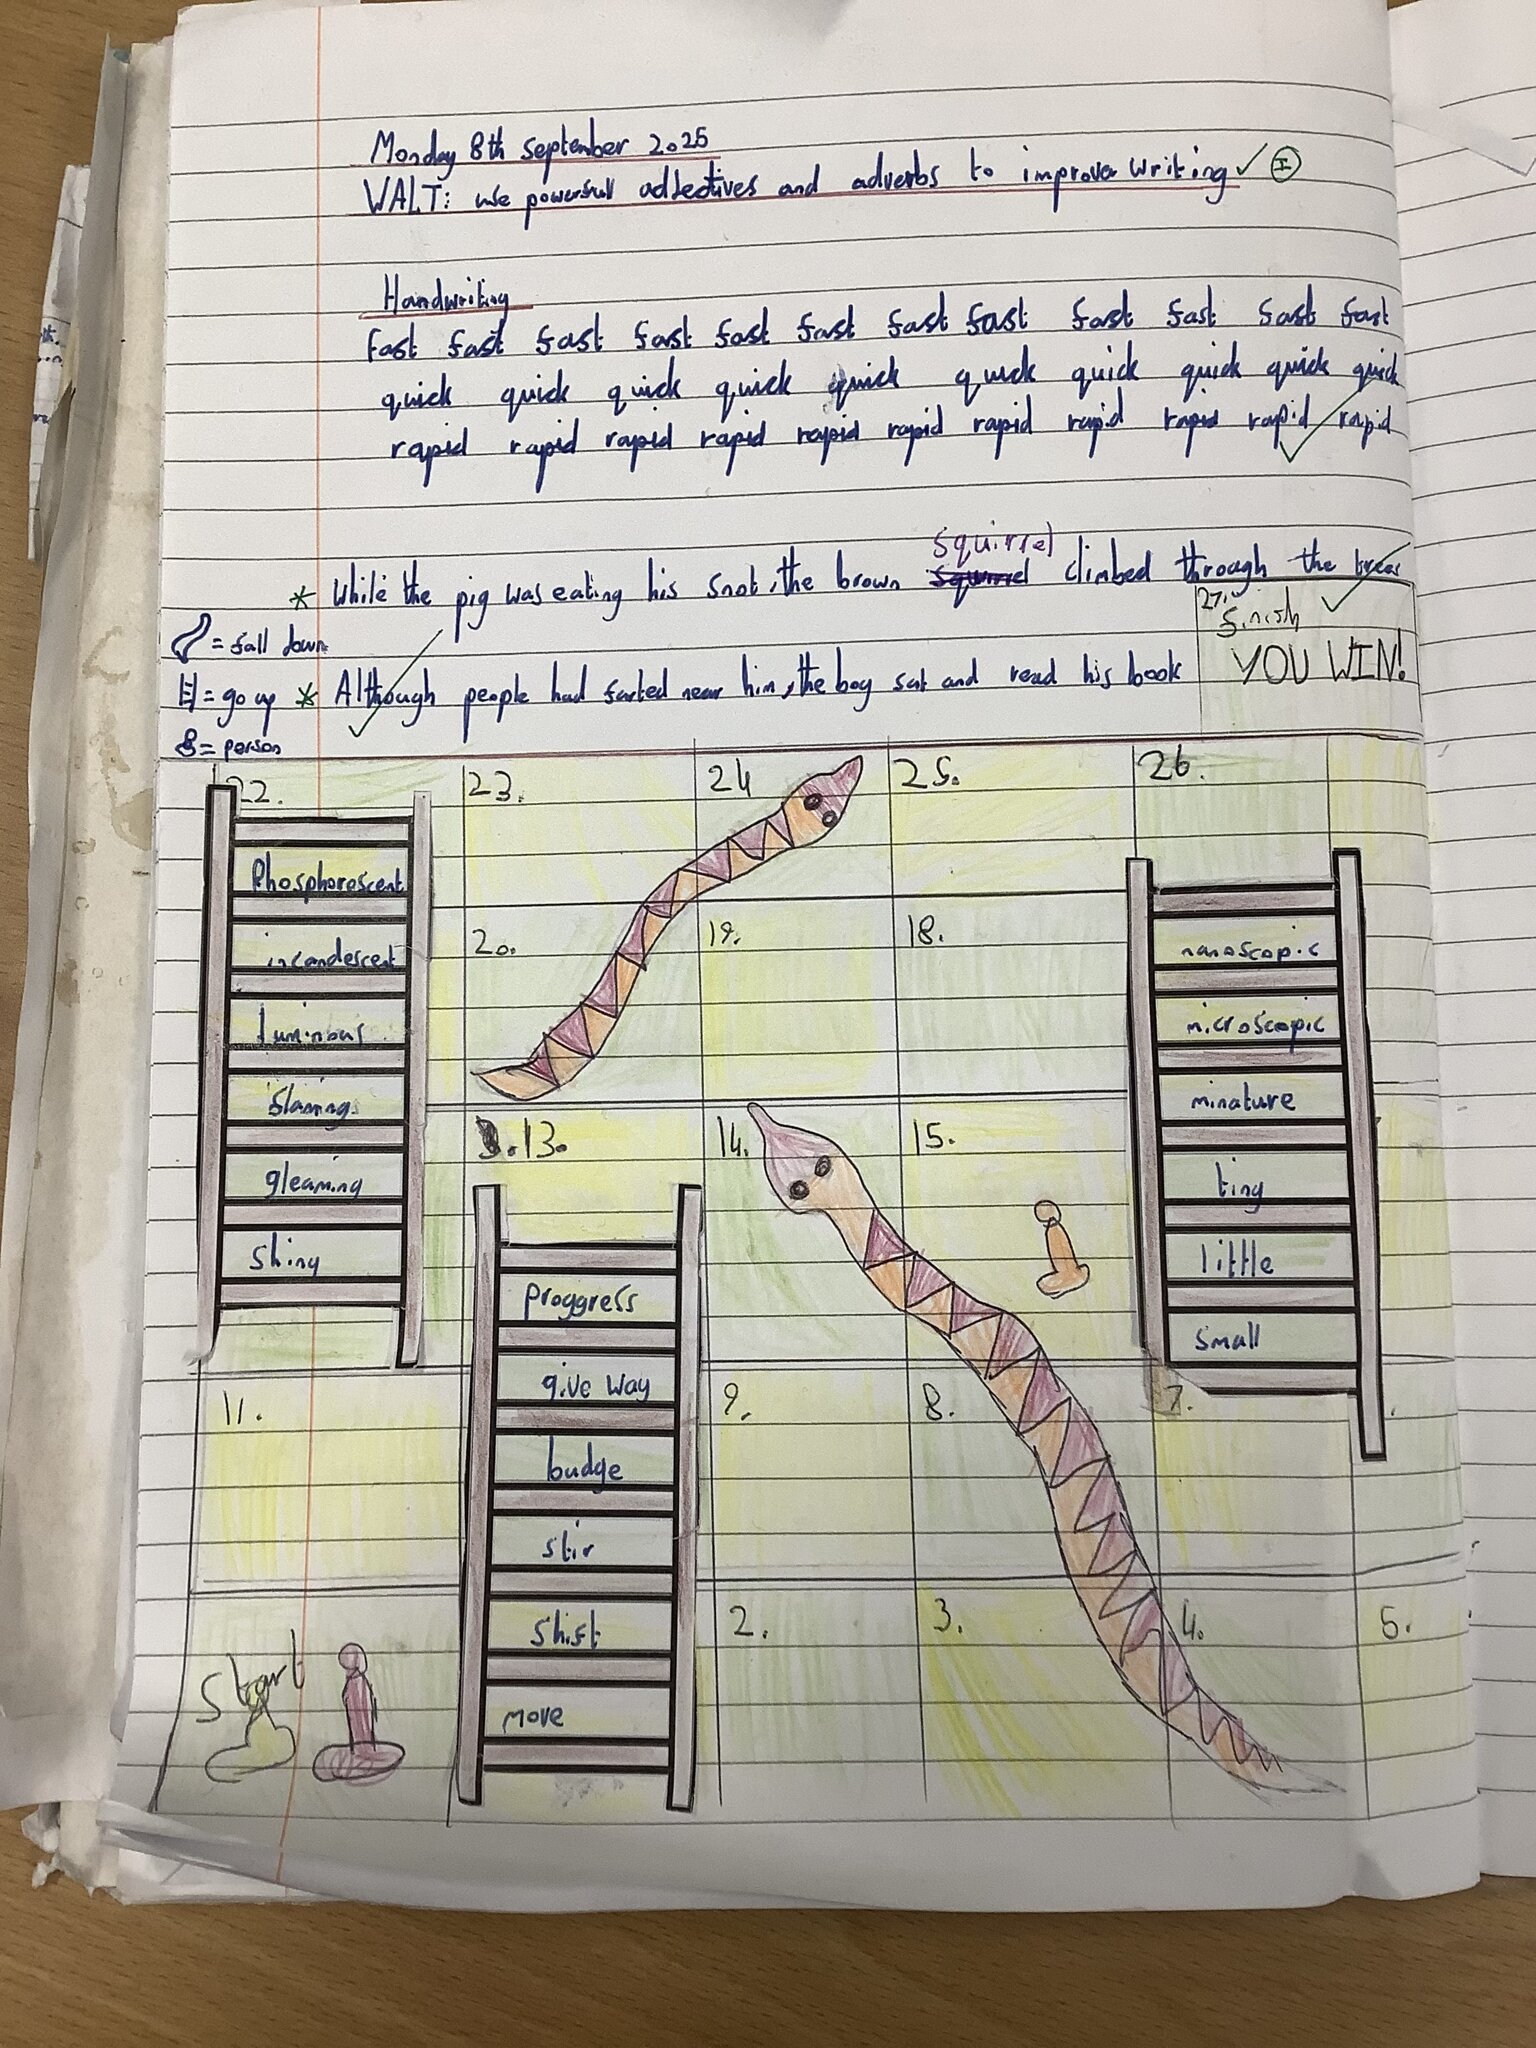 Monday 8th september 2025
WALT: use powerfull adjectives and adverbs to improve writing ✓ I
Handwriting
fast fast fast fast fast fast fast fast fast fast fast fast
quick quick quick quick quick quick quick quick quick quick
rapid rapid rapid rapid rapid rapid rapid rapid rapid rapid rapid
squirrel
* While the pig was eating his snot, the brown climbed through the trees
= fall down
27. finish
YOU WIN!
= go up * Although people had farted near him, the boy sat and read his book
= person
22. 23. 24 25. 26.
Phosphorescent
incandescent
luminous
flaming
gleaming
shiny
20. 19. 18.
nanoscopic
microscopic
minature
tiny
little
small
13. 14. 15.
proggress
give way
budge
stir
shift
move
11. 9. 8. 7.
Start 2. 3. 4. 5.